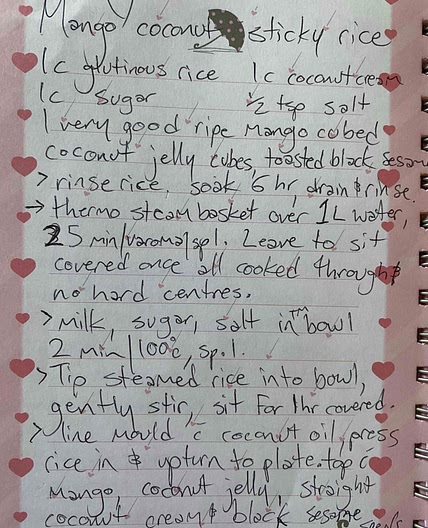 Mango coconut sticky rice
1c glutinous rice 1c coconut cream
1c sugar 1/2 tsp salt
1 very good ripe mango cubed
coconut jelly cubes, toasted black sesame
> rinse rice, soak 6 hr, drain & rinse.
→ thermo steam basket over 1L water,
25 min/varoma/sp1. Leave to sit
covered once all cooked through &
no hard centres.
> milk, sugar, salt in TM bowl
2 min/100°c, sp.1.
> Tip steamed rice into bowl,
gently stir, sit for 1hr covered.
> line mould c̄ coconut oil, press
rice in & upturn to plate. top c̄
mango, coconut jelly, straight
coconut cream & black sesame
seeds